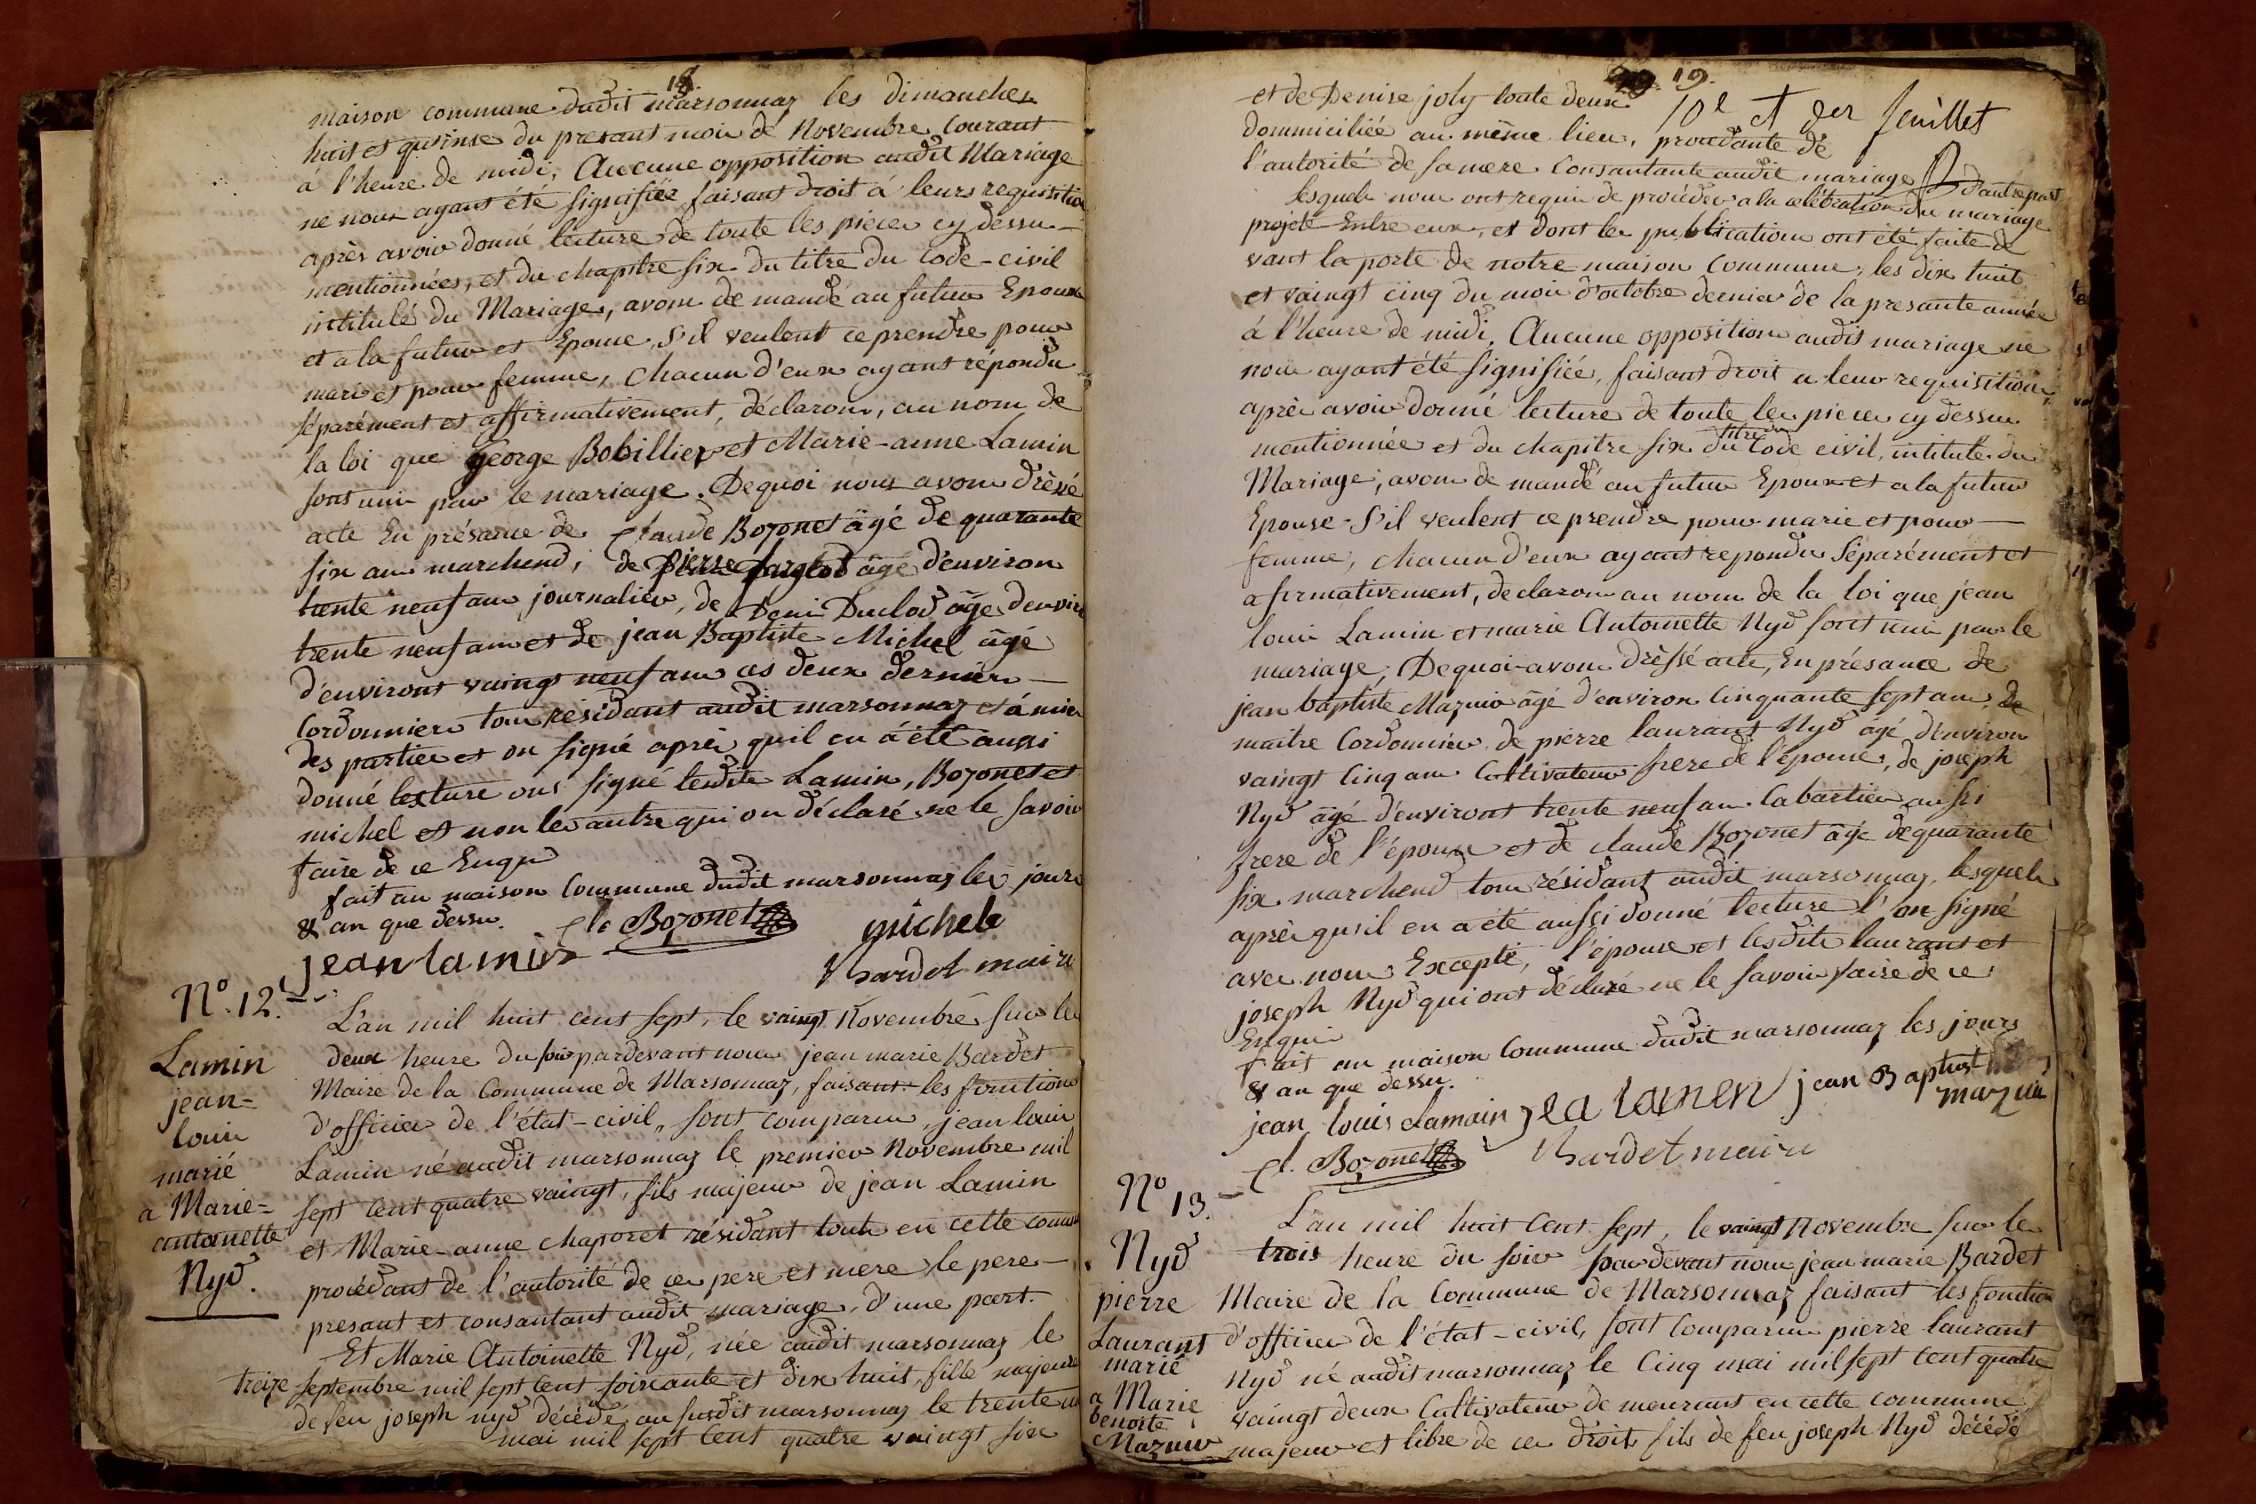 18.
maison commune dudit marsonnaz les dimanches
huit et quainse du presant mois de Novembre courant
à l'heure de midi, Aucune opposition audit Mariage
ne nous ayant été signifiée faisant droit á leurs requisition
après avoir donné lecture de toute les pieces cy dessu
mentionnées, et du chapitre six du titre du Code-civil
intitulé du Mariage, avons de mandé au futur Epoux
et a la futur et Epouse, s'il veulent ce prendre pour
mari et pour femme, chacun d'eux ayant répondu
séparément et affirmativement, déclarons, au nom de
la loi que George Bobillier et Marie-anne Lamin
sont unis par le mariage. De quoi nous avons drèsé
acte En présance de Claude Bozonet âgé de quarante
six ans marchend, de pierre âgé d'environ
trente neuf ans journalier, de Deni Duclod âge d'environ
trente neuf ans et de jean Baptiste Michel âgé
d'environt vaingt neuf ans ces deux dernièrs
Cordonniers tous residant audit marsonnaz et ámis
des parties et on signé après quil en á été aussi
donné lecture ont signé lesdits Lamin, Bozonet et
michel et non les autre qui on déclaré ne le savoir
faire de ce Enqui
fait au maison Commune dudit marsonnaz les jours
& an que dessu.
Cle Bozonet michele
jean lamin Bardet maire
No. 12.
Lamin
jean=
louis
marié
a Marie=
antoinette
Nyd.
L'an mil huit cent sept, le vaingt Novembre sur les
deux heure du soir pardevant nous jean marie Bardet
Maire de la Commune de Marsonnaz, faisant les fonctions
d'officier de l'état-civil, sont comparus, jean louis
Lamin né audit marsonnaz le premier Novembre mil
sept cent quatre vaingt, fils majeur de jean Lamin
et Marie-anne chaponet résidant touts en cette commune
procédant de l'autorité de ces pere et mere le pere
presant et consantant audit mariage, d'une part.
Et Marie Antoinette Nyd, née audit marsonnaz le
treize septembre mil sept cent soixante et dix huit, fille majeure
de feu joseph nyd décédé au susdit marsonnaz le trente un
mai mil sept cent quatre vaingt six
19.
10e et der feuillet
et de Denise joly toute deux
dommiciliée au même lieu, procédante de
l'autorité de sa mere consantante audit mariage d'autre part
lesquels nous ont requis de procéder a la célébration du mariage
projeté Entre eux, et dont les publications ont été faite de
vant la porte de notre maison Commune, les dix huit
et vaingt cinq du mois d'octobre dernier de la presante année
à l'heure de midi, Aucune opposition audit mariage ne
nous ayant été signifiée, faisant droit a leur requisition
après avoir donné lecture de toute les pieces cy dessus
mentionnée et du chapitre six du titre du Code civil, intitulé du
Mariage, avons de mandé au futur Epoux et a la futur
Epouse s'il veulent ce prendre pour marie et pour
femme, chacun d'eux ayant repondu séparément et
afirmativement, declarons au nom de la loi que jean
louis Lamin et marie Antoinette Nyd sont unis par le
mariage, De quoi avons drèssé acte, En présance de
jean baptiste Mazuir âgé d'environ Cinquante sept ans, de
maitre Cordonnier, de pierre laurant Nyd âgé d'environ
vaingt cinq ans Cultivateur frere de l'épouse, de joseph
Nyd âgé d'environt trente neuf ans Cabartier aussi
frere de l'épouse et de claude Bozonet âgé de quarante
six marchend tous résidant audit marsonnaz, lesquels
après qu'il en a été aussi donné lecture l'on signé
avec nous Excepté, l'épouse et lesdits laurant et
joseph Nyd qui ont déclaré ne le savoir faire de ce
Enquis
fait au maison Commune dudit marsonnaz les jours
& an que dessu.
jean louis Lamain jea lamen jean Baptist mazuir
Cl. Bozonet Bardet maire
No 13.
Nyd
pierre
Laurant
marié
a Marie
benoite
Mazuir
L'an mil huit cent sept, le vaingt Novembre sur le
trois heure du soir par devant nous jean marie Bardet
Maire de la Commune de Marsonnaz faisant les fonction
d'officier de l'état-civil, sont comparus pierre laurant
Nyd né audit marsonnaz le Cinq mai mil sept cent quatre
vaingt deux Cultivateur demeurant en cette commune
majeur et libre de ces droits fils de feu joseph Nyd décédé